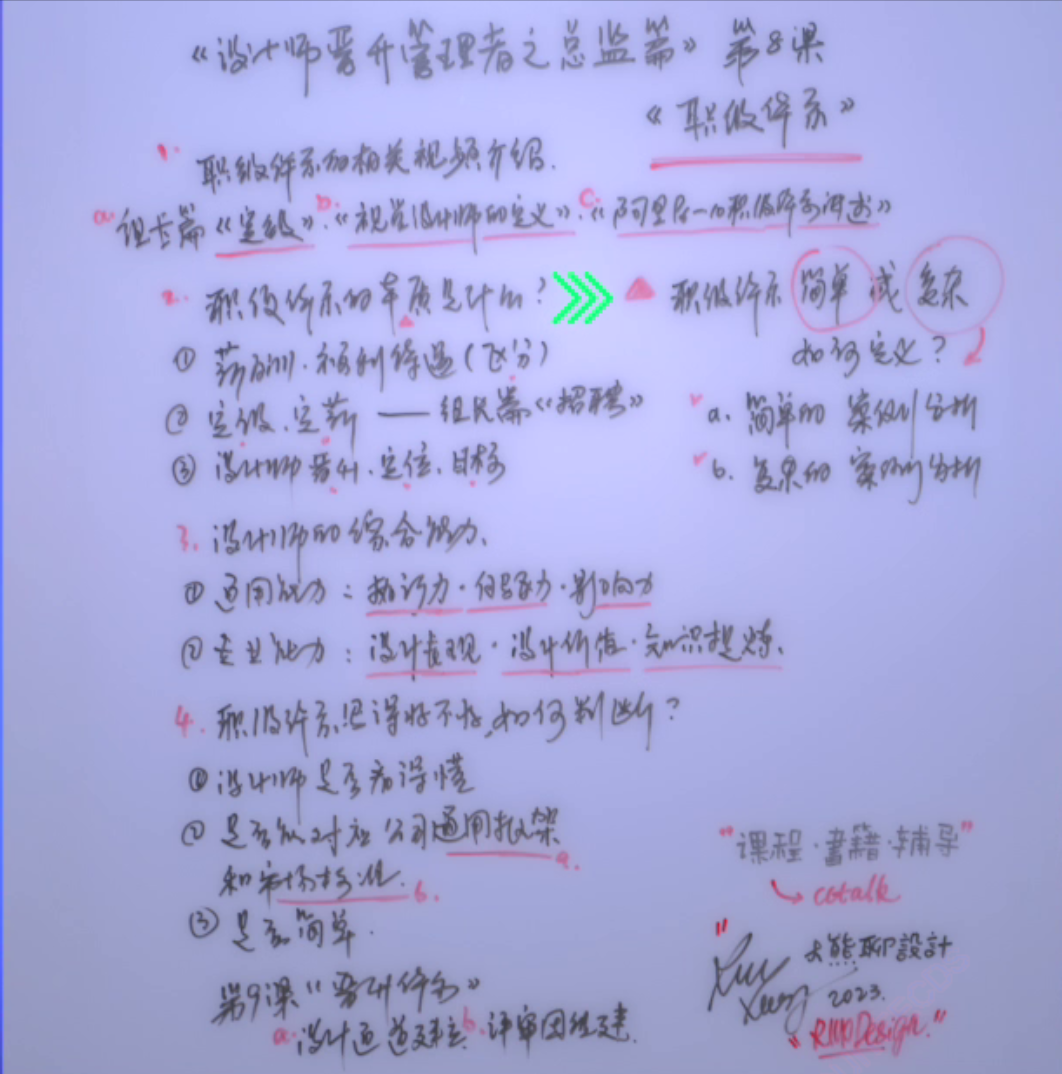 《设计师晋升管理者之总监篇》第8课
《职级体系》
1. 职级体系的相关视频介绍.
a. 组长篇《定级》. b.《视觉设计师的定义》. c.《阿里P1-10职级体系讲述》
2. 职级体系的本质是什么?
① 薪酬.福利待遇(区分)
② 定级.定薪 —— 组长篇《招聘》
③ 设计师晋升.定位.目标
▲ 职级体系 简单 或 复杂
如何定义?
a. 简单的 案例分析
b. 复杂的 案例分析
3. 设计师的综合能力.
① 通用能力: 执行力·领导力·影响力
② 专业能力: 设计表现·设计价值·知识提炼.
4. 职级体系写得好不好,如何判断?
① 设计师是否看得懂
② 是否能对应公司通用框架 a.
和市场标准. b.
③ 是否简单.
第9课《晋升体系》
a. 设计通道建立 b. 评审团组建.
"课程·書籍·辅导"
cotalk
大熊聊設計
2023.
"RMPDesign."